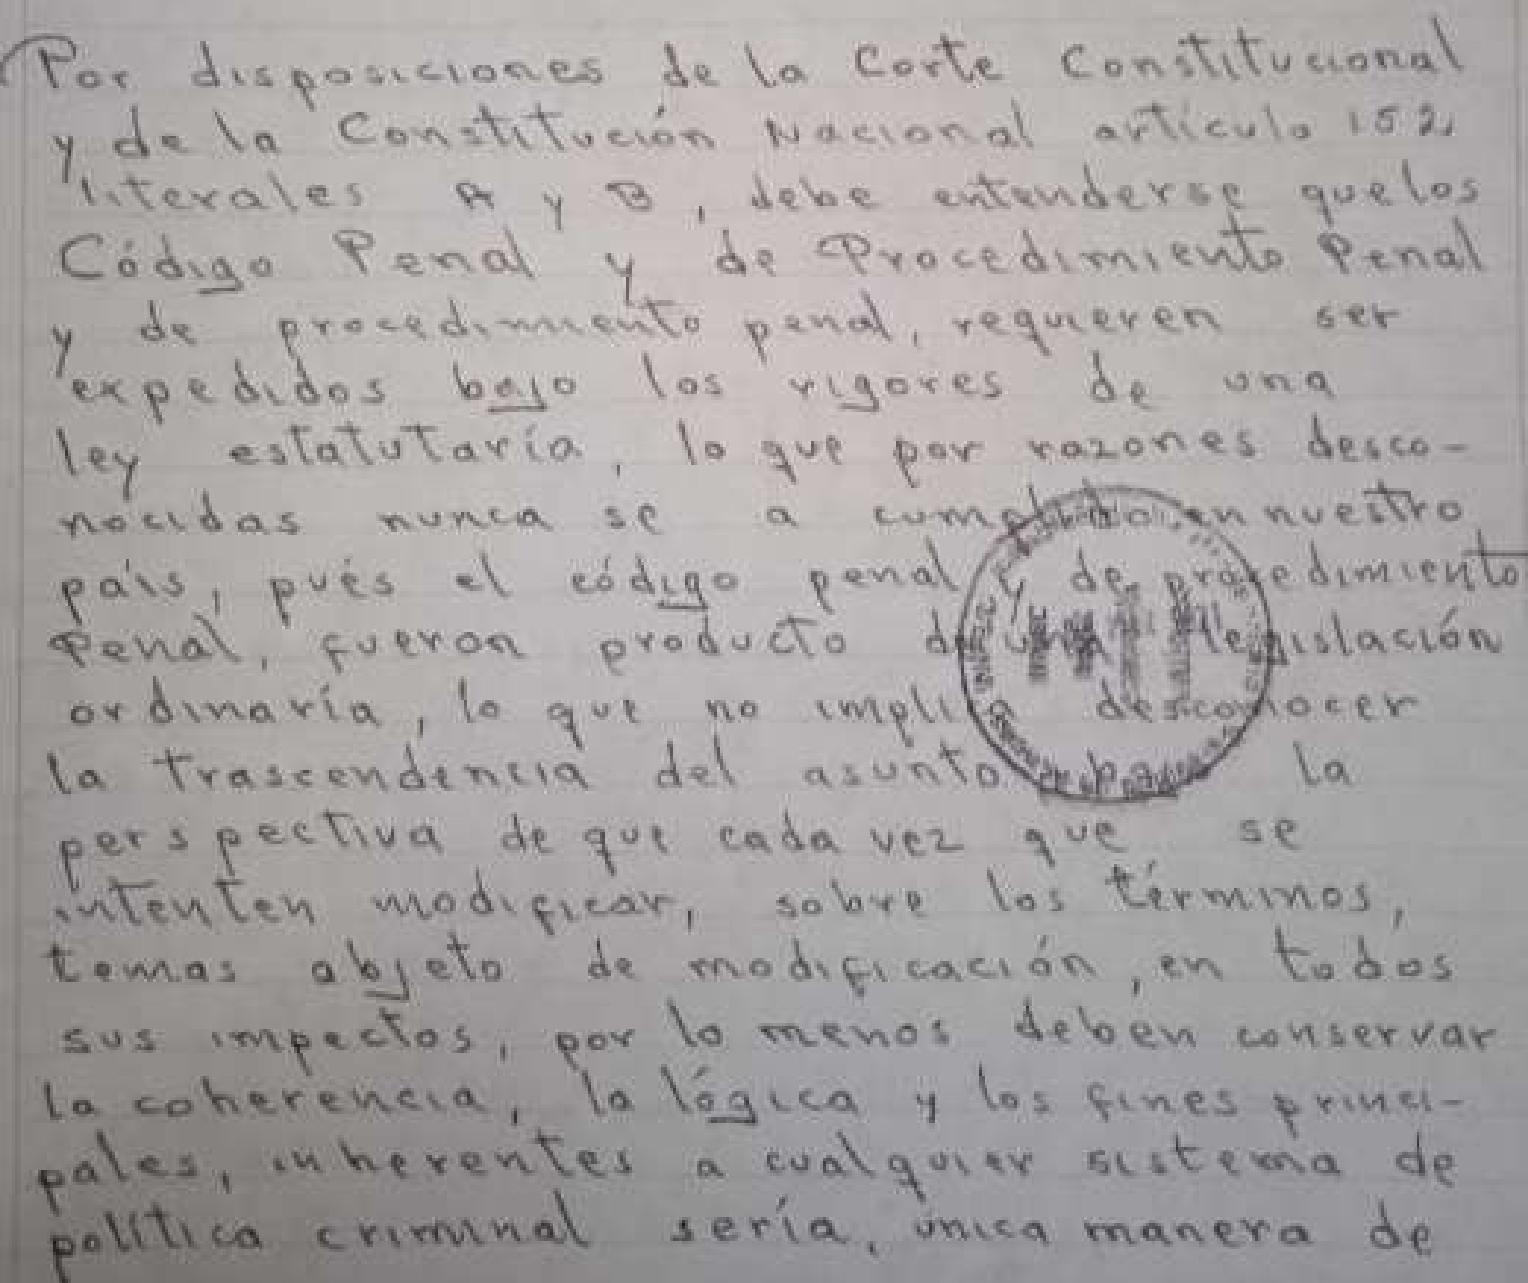 Por disposiciones de la Corte Constitucional
y de la Constitución Nacional artículo 152
literales A y B, debe entenderse que los
Código Penal y de Procedimiento Penal
y de procedimiento penal, requieren ser
expedidos bajo los rigores de una
ley estatutaría, lo que por razones desco-
nocidas nunca se a cumplido en nuestro
país, pués el código penal y de procedimiento
Penal, fueron producto de una legislación
ordinaría, lo que no implica desconocer
la trascendencia del asunto bajo la
perspectiva de que cada vez que se
intenten modificar, sobre los términos,
temas objeto de modificación, en todos
sus impectos, por lo menos deben conservar
la coherencia, la lógica y los fines princi-
pales, inherentes a cualquier sistema de
política criminal sería, única manera de